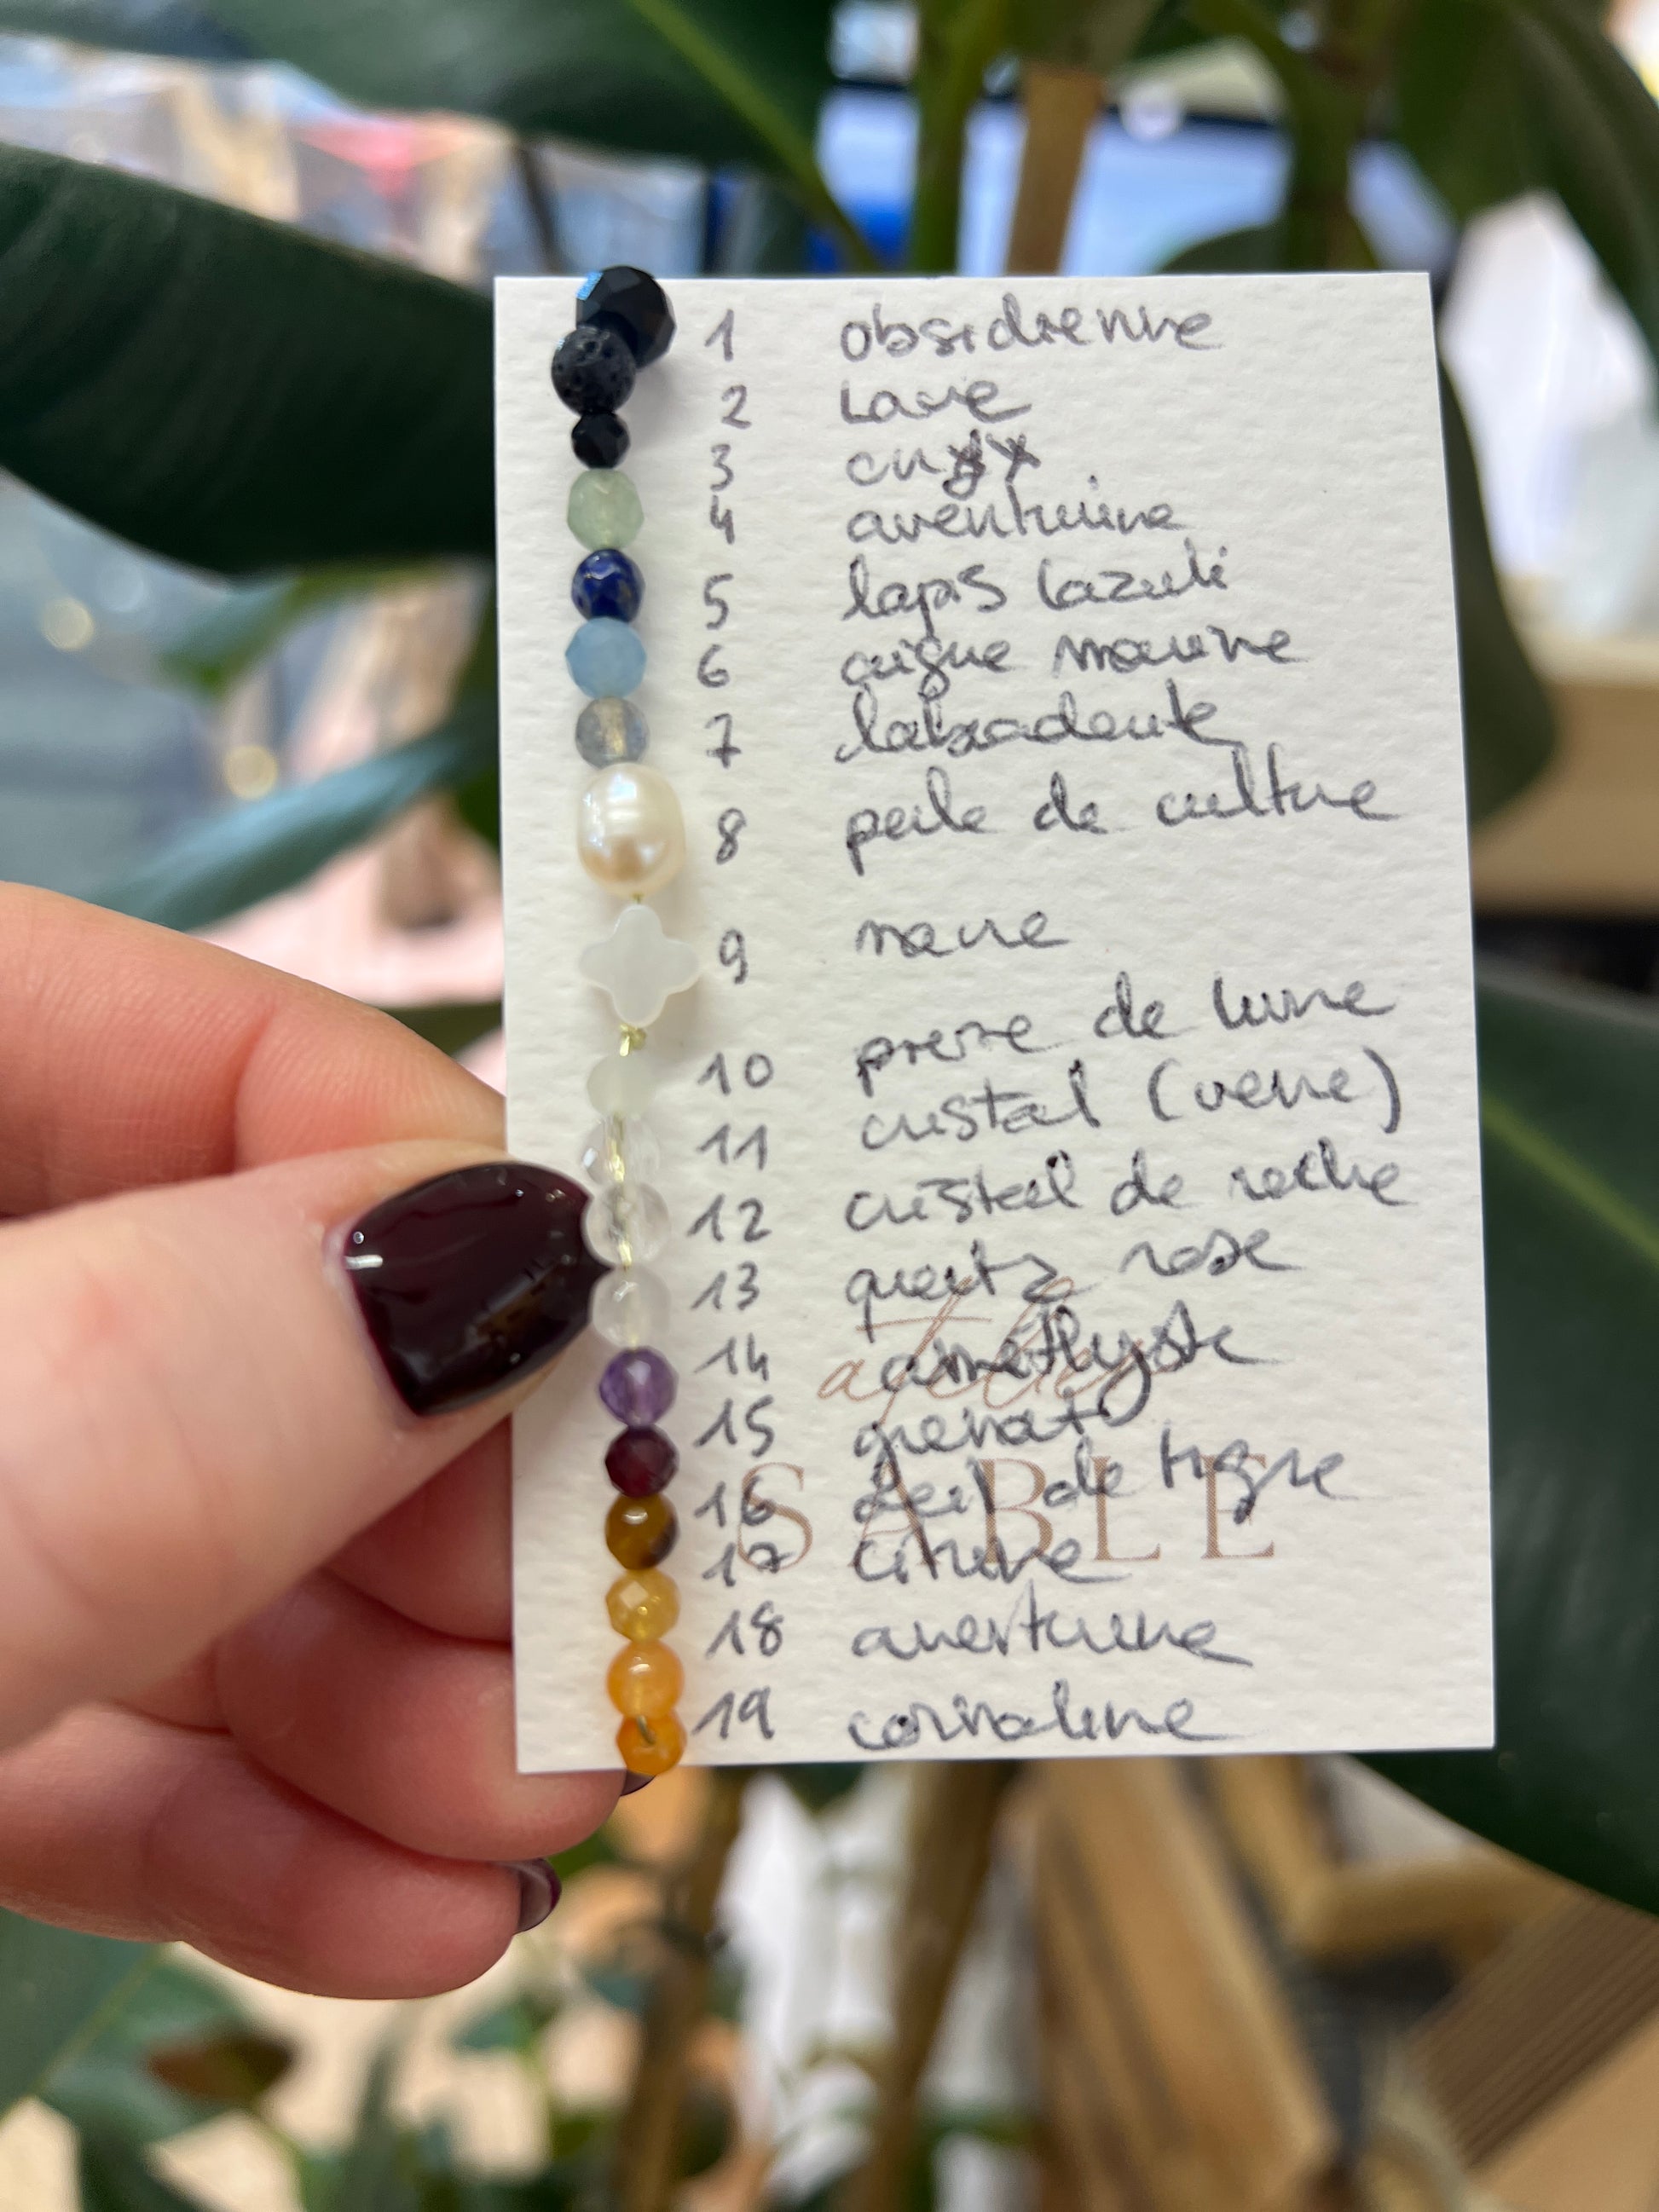 1 obsidienne
2 Lave
3 onyx
4 aventurine
5 lapis lazuli
6 aigue marine
7 labradorite
8 perle de culture
9 nacre
10 pierre de lune
11 cristal (verre)
12 cristal de roche
13 quartz rose
14 améthyste
15 grenat
16 œil de tigre
17 citrine
18 aventurine
19 cornaline
atelier
SABLE